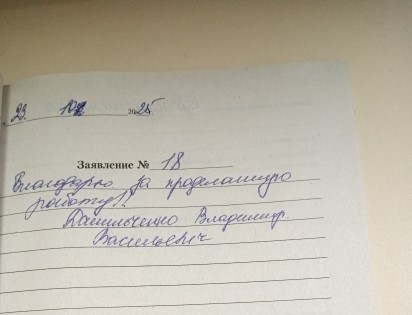 23. 10 2025
Заявление № 18
Благодарю за проделанную
работу!!
Данильченко Владимир
Васильевич